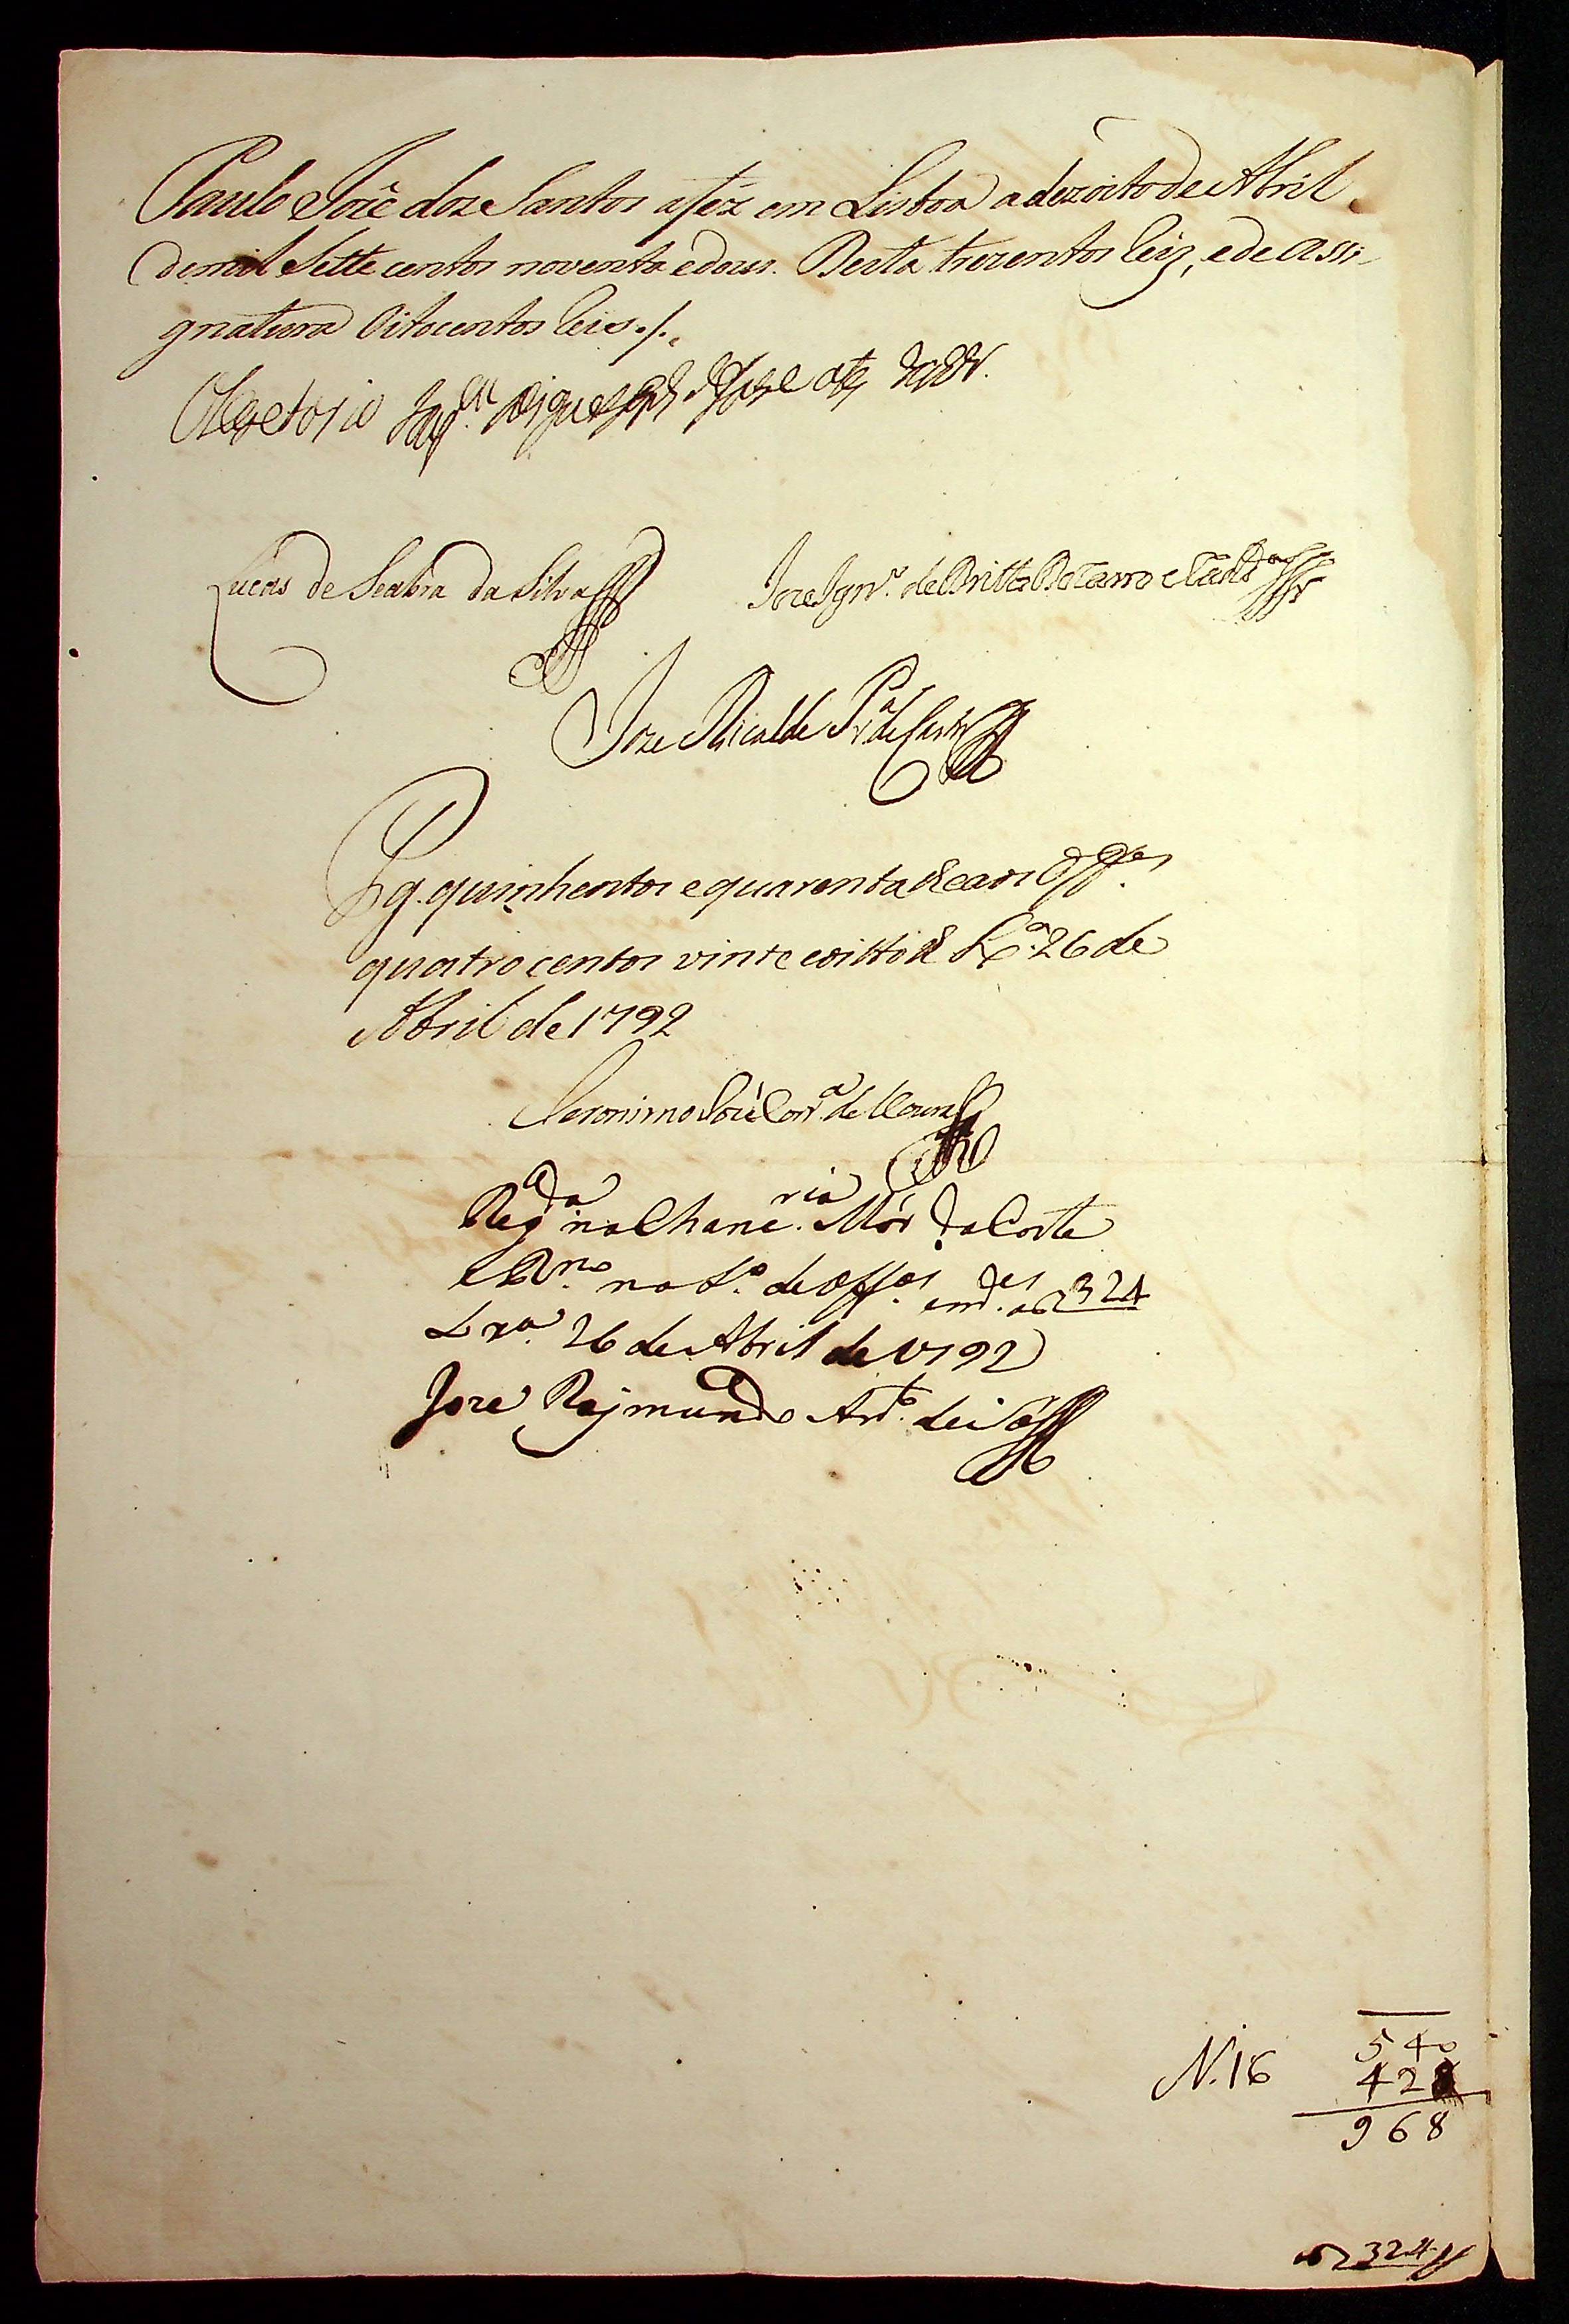 Paulo José dos Santos a fez em Lisboa a dezoito de Abril
de mil Sette centos noventa e dous. Desta trezentos reis, e de assi-
gnatura Oitocentos reis./.
Lucas de Seabra da Silva
Joze Ign.º de Britto Bocarro e Cast.ª
Joze Ricalde P.ra de Castro
Pg. quinhentos e quarenta rs e aos Off.es
quatro centos vinte e oitto rs Lx.ª 26 de
Abril de 1792
Jeronimo José Corr.ª de Moura
Reg.da na Chanc.ria Mór da Corte
e R.no no L.º de Off.os e m.ces a f 324
Lx.ª 26 de Abril de 1792
Joze Rajmundo
N. 16
540
428
968
324